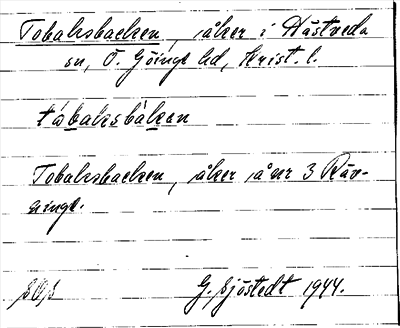 Tobaksbacken, åker i Hästveda
sn, Ö. Göinge hd, Krist. l.
tábaksbàkan
Tobaksbacken, åker åvr 3 Röv-
singe.
G. Sjöstedt 1944.